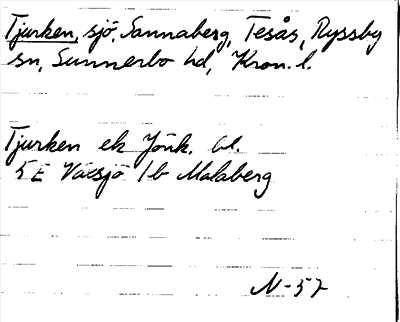 Tjurken, sjö, Sannaberg, Tesås, Ryssby
sn, Sunnerbo hd, Kron. l.
Tjurken ek Jönk. bl.
5E Växsjö 1b Malaberg
N-57